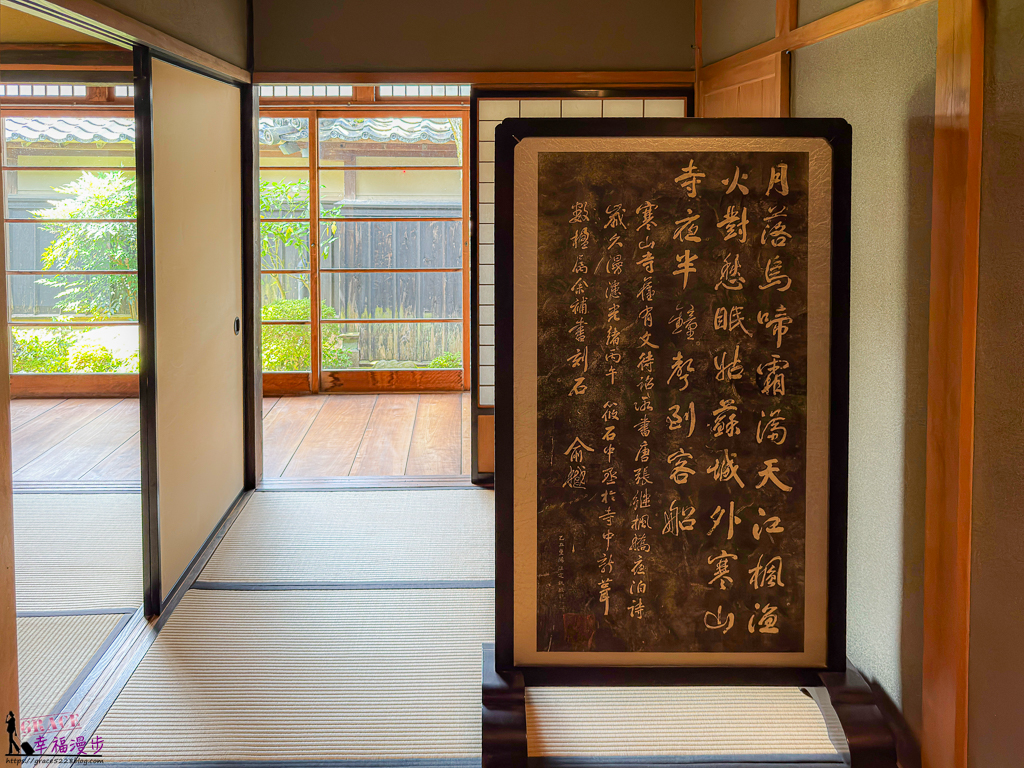 月落烏啼霜滿天江楓漁
火對愁眠姑蘇城外寒山
寺夜半鐘聲到客船
寒山寺舊有文待詔所書唐張繼楓橋夜泊詩
歲久漫漶光緒丙午筱石中丞於寺中新葺
數楹屬余補書刻石
俞樾
GRACE
幸福漫步
https://grace5228blog.com